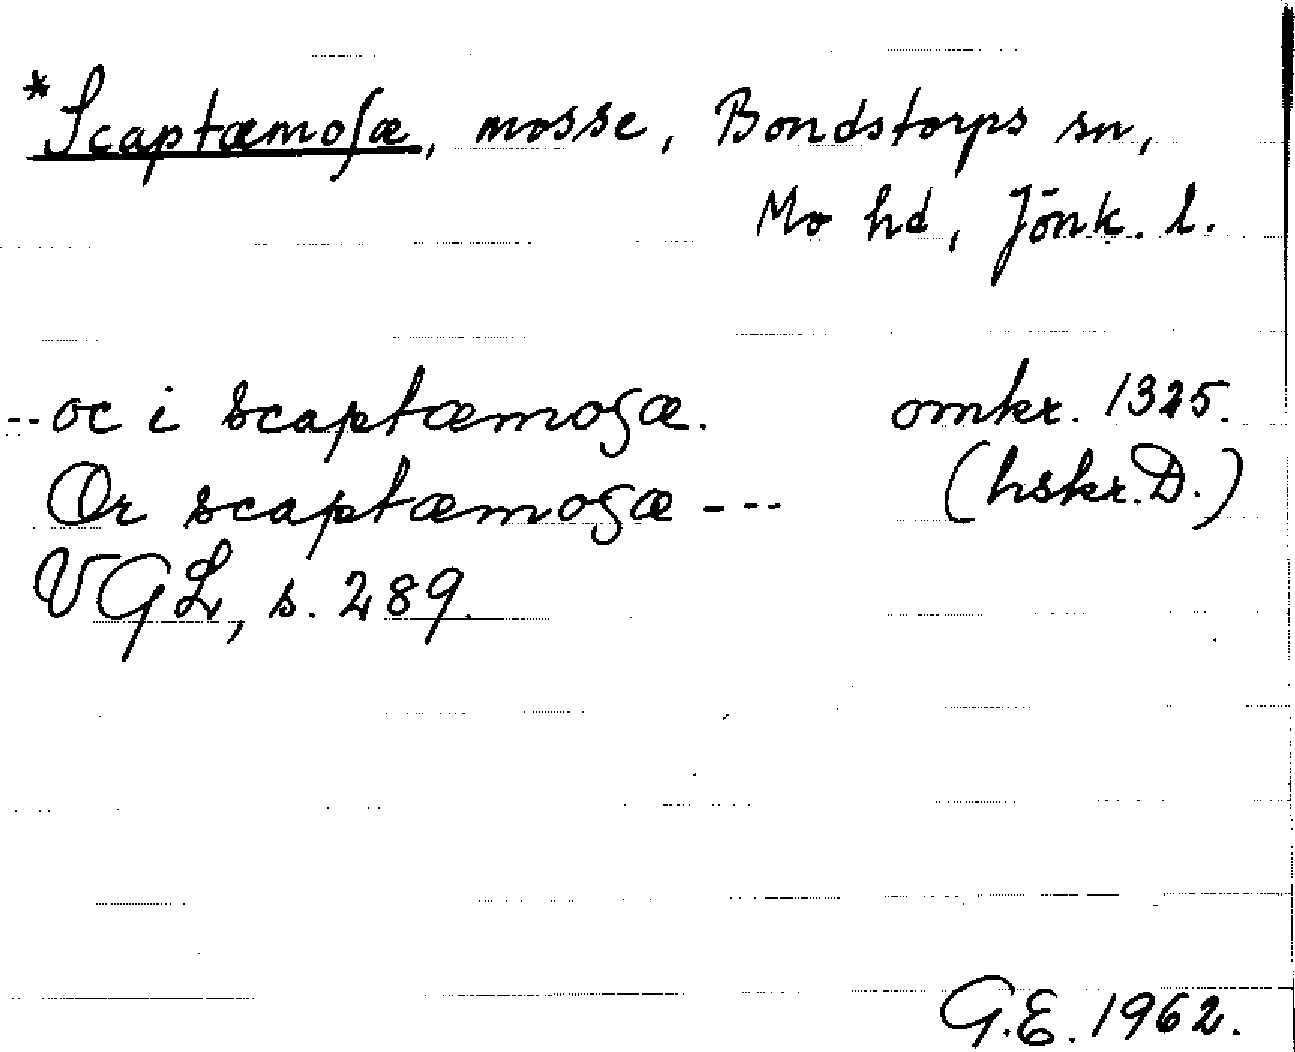 *Scaptæmoſæ, mosse, Bondstorps sn,
Mo hd, Jönk. l.
--oc i scaptæmosæ. omkr. 1325.
Or scaptæmosæ --- (hskr. D.)
VGL, s. 289.
G.E. 1962.